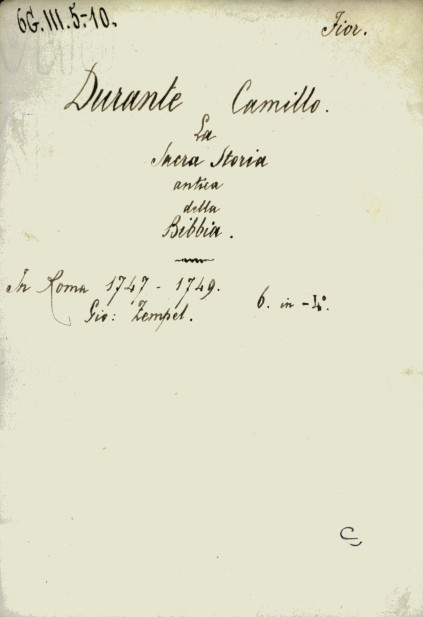 6G.III.5-10.
Fior.
Durante Camillo.
La
Sacra Storia
antica
della
Bibbia.
In Roma 1747 - 1749.
Gio: Zempel.
6. in -4°.
C